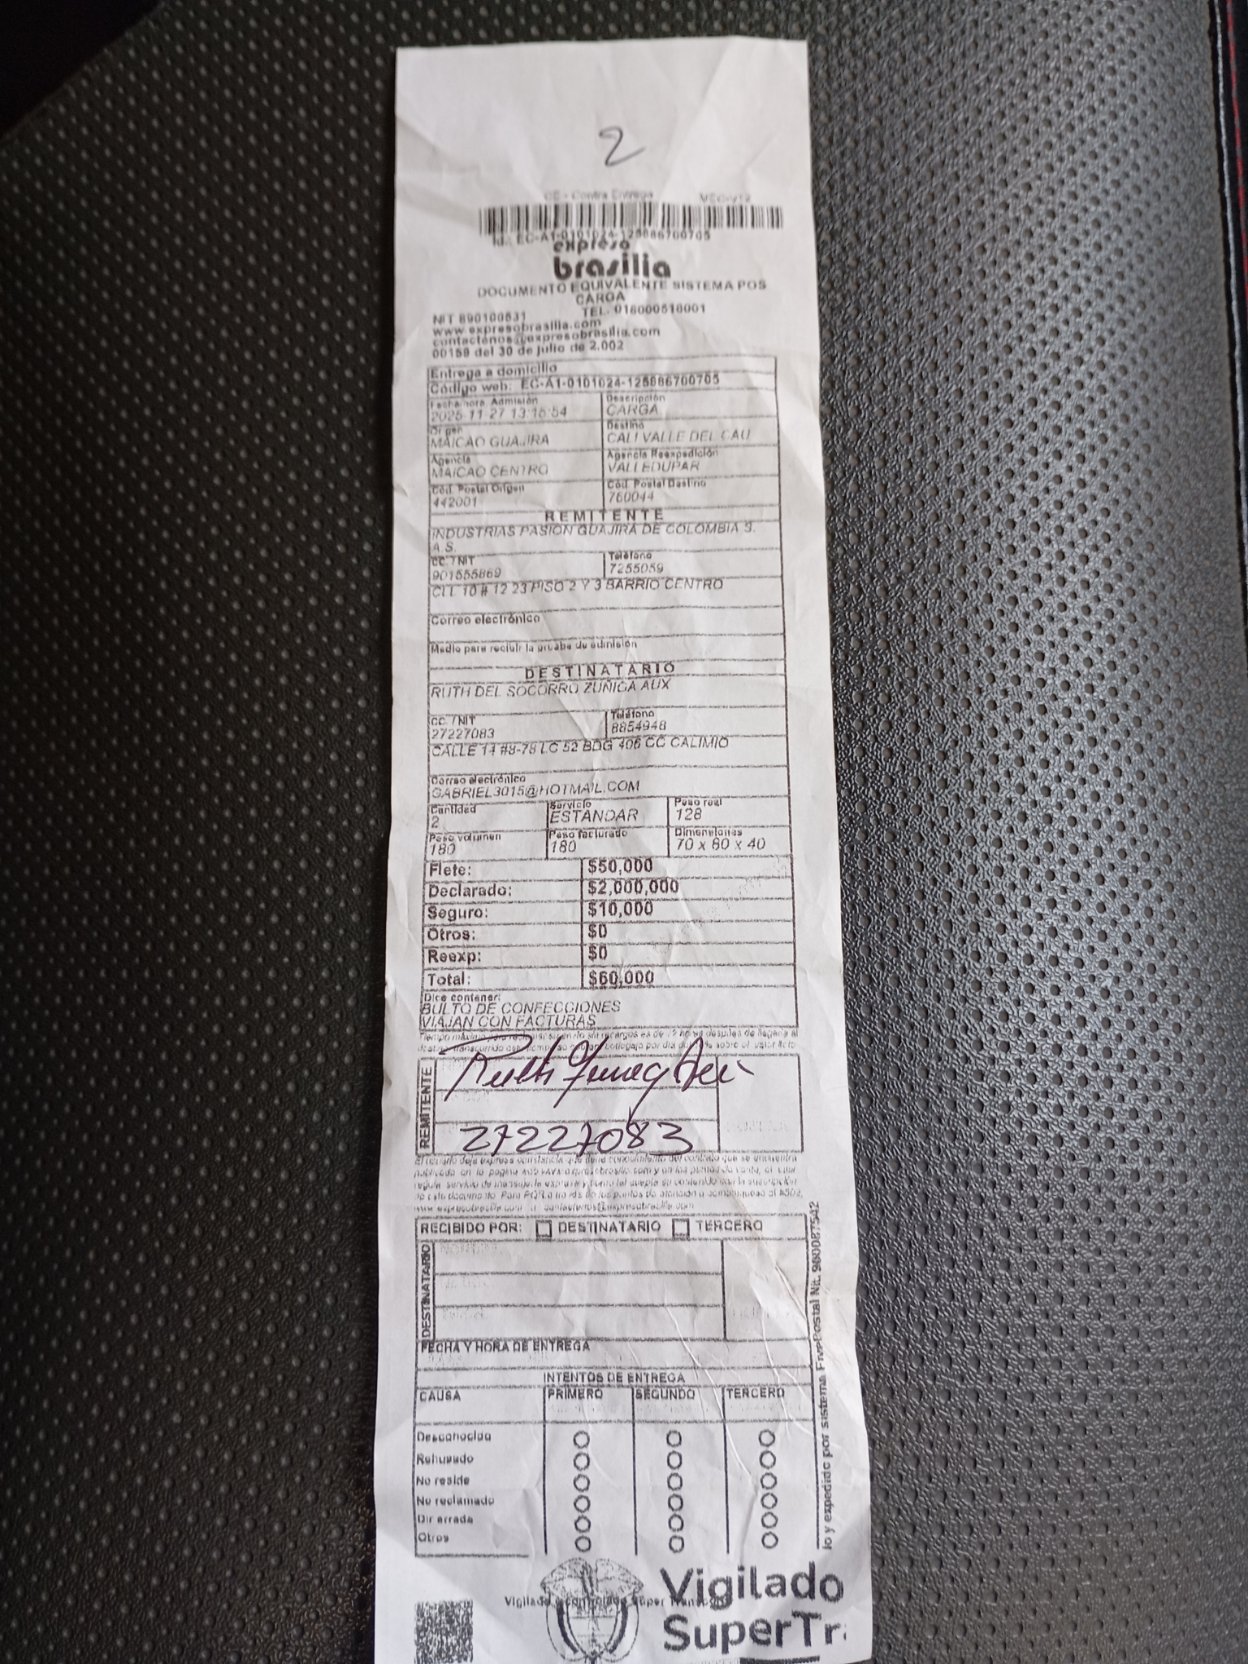 2
CE - Contra Entrega
Id.: EC-A1-0101024-125886700705
expreso
brasilia
DOCUMENTO EQUIVALENTE SISTEMA POS
CARGA
NIT 890100531 TEL. 018000518001
www.expresobrasilia.com
contactenos@expresobrasilia.com
00159 del 30 de julio de 2.002
Entrega a domicilio
Código web: EC-A1-0101024-125886700705
Fecha hora Admisión Descripción
2025-11-27 13:16:54 CARGA
Origen Destino
MAICAO GUAJIRA CALI VALLE DEL CAU
Agencia Agencia Reexpedición
MAICAO CENTRO VALLEDUPAR
Cód. Postal Origen Cód. Postal Destino
442001 760044
REMITENTE
INDUSTRIAS PASION GUAJIRA DE COLOMBIA S.
A.S.
CC. / NIT Teléfono
901555869 7255059
CLL 10 # 12 23 PISO 2 Y 3 BARRIO CENTRO
Correo electrónico
Medio para recibir la prueba de admisión
DESTINATARIO
RUTH DEL SOCORRO ZUÑIGA AUX
CC. / NIT Teléfono
27227083 8854948
CALLE 14 #8-78 LC 52 BDG 406 CC CALIMIO
Correo electrónico
GABRIEL3015@HOTMAIL.COM
Cantidad Servicio Peso real
2 ESTANDAR 128
Peso volumen Peso facturado Dimensiones
180 180 70 x 80 x 40
Flete: $50,000
Declarado: $2,000,000
Seguro: $10,000
Otros: $0
Reexp: $0
Total: $60,000
Dice contener:
BULTO DE CONFECCIONES
VIAJAN CON FACTURAS
REMITENTE
27227083
RECIBIDO POR: DESTINATARIO TERCERO
DESTINATARIO
FECHA Y HORA DE ENTREGA
INTENTOS DE ENTREGA
CAUSA PRIMERO SEGUNDO TERCERO
Desconocido
Rehusado
No reside
No reclamado
Dir errada
Otros
Vigilado
SuperTr